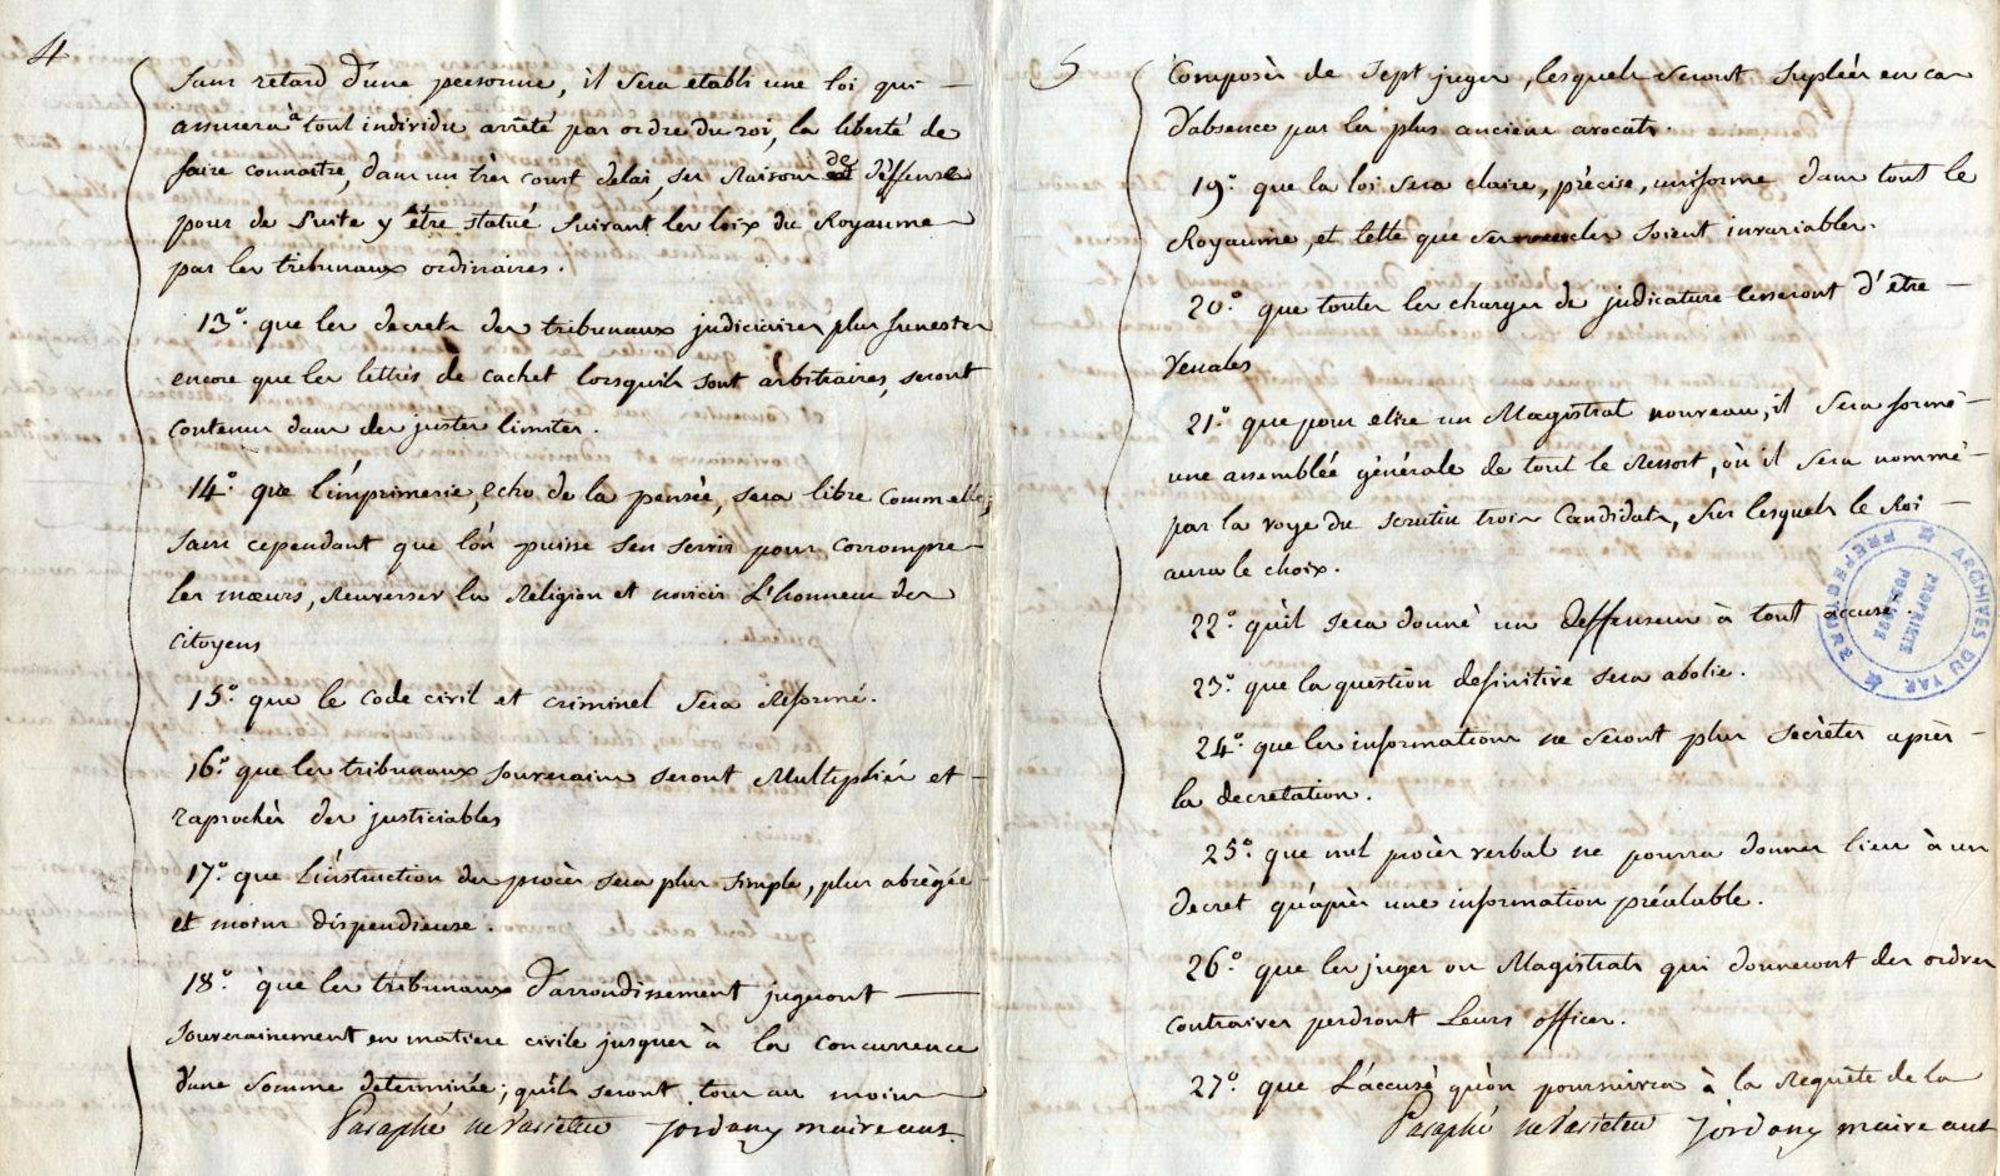 4
sans retard d'une personne, il sera etabli une loi qui
assurera à tout individu arrêté par ordre du roi, la liberté de
faire connoitre, dans un très court delai, ses Raisons de déffense
pour de suite y être statué suivant les loix du Royaume
par les tribunaux ordinaires.
13°. que les decrets des tribunaux judiciaires plus funestes
encore que les lettrés de cachet lorsquils sont arbitraires, seront
contenus dans des justes limites.
14°. que l'imprimerie, echo de la pensée, sera libre comm'elle,
sans cependant que l'on puisse sen servir pour corrompre
les mœurs, Renverser la Religion et noircir L'honneur des
citoyens
15°. que le code civil et criminel sera Reformé.
16°. que les tribunaux souverains seront Multipliés et
raprochés des justiciables
17°. que L'instruction des procès sera plus simple, plus abrégée
et moins dispendieuse.
18°. que les tribunaux D'arrondissement jugeront
souverainement en matiere civile jusques à la concurrence
d'une somme determinée; qu'ils seront tous au moins
Paraphé ne Varietur jordany maire aut
5
composés de sept juges, lesquels seront supléés en cas
d'absence par les plus anciens avocats.
19°. que la loi sera claire, précise, uniforme dans tout le
Royaume, et telle que ses soient invariables.
20°. que toutes les charges de judicature cesseront d'être
venales
21°. que pour elire un Magistrat nouveau, il sera formé
une assemblée générale de tout le Ressort, où il sera nommé
par la voye du scrutin trois Candidats, sur lesquels le Roi
aura le choix.
22°. qu'il sera donné un deffenseur à tout accusé.
23°. que la question definitive sera abolie.
24°. que les informations ne seront plus secrètes après
la decretation.
25°. que nul procès verbal ne pourra donner lieu à un
decret qu'après une information préalable.
26°. que les juges ou Magistrats qui donneront des ordres
contraires perdront Leurs offices.
27°. que L'accusé qu'on poursuivra à la Requête de la
Paraphé ne Varietur jordany maire aut
ARCHIVES DU VAR
PREFECTURE
PROPRIÉTÉ
PUBLIQUE